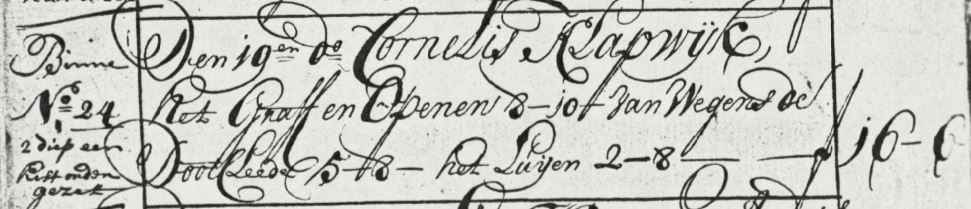 Binne
Den 19en do Cornelis Klapwijk,
No 24
Het Graff en Openen 8-10-f Van Wegens de
2 diep een
kist onder
gezet
Doot Cleede 5-8- het Luyen 2-8
16-6